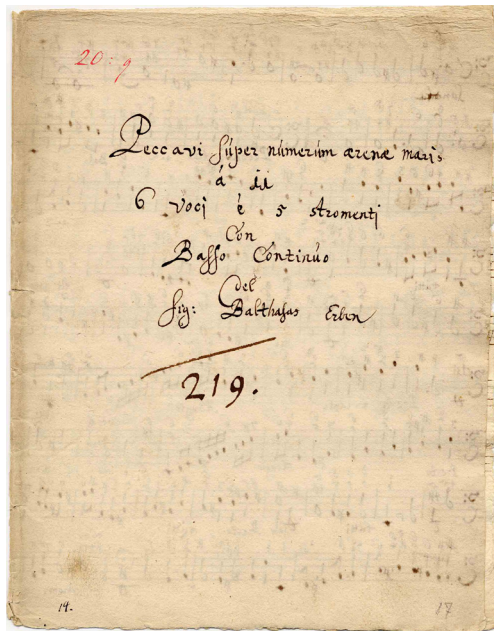 20: 9
Peccavi super numerum arenæ maris
á 11
6 voci è 5 stromenti
Con
Basso Continuo
del
Sig: Balthasar Erben
219.
14.
17